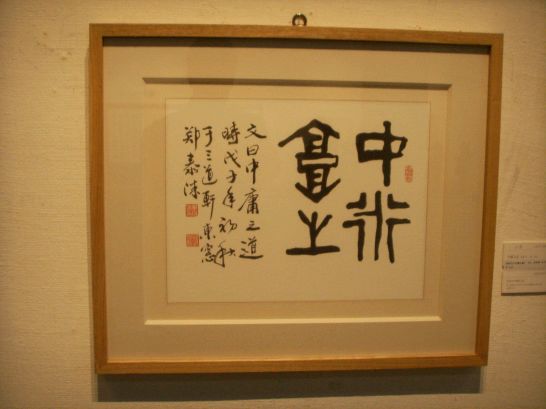 中庸之道
文曰中庸之道
時戊子年初秋
于三道軒東窓
郑泰洙